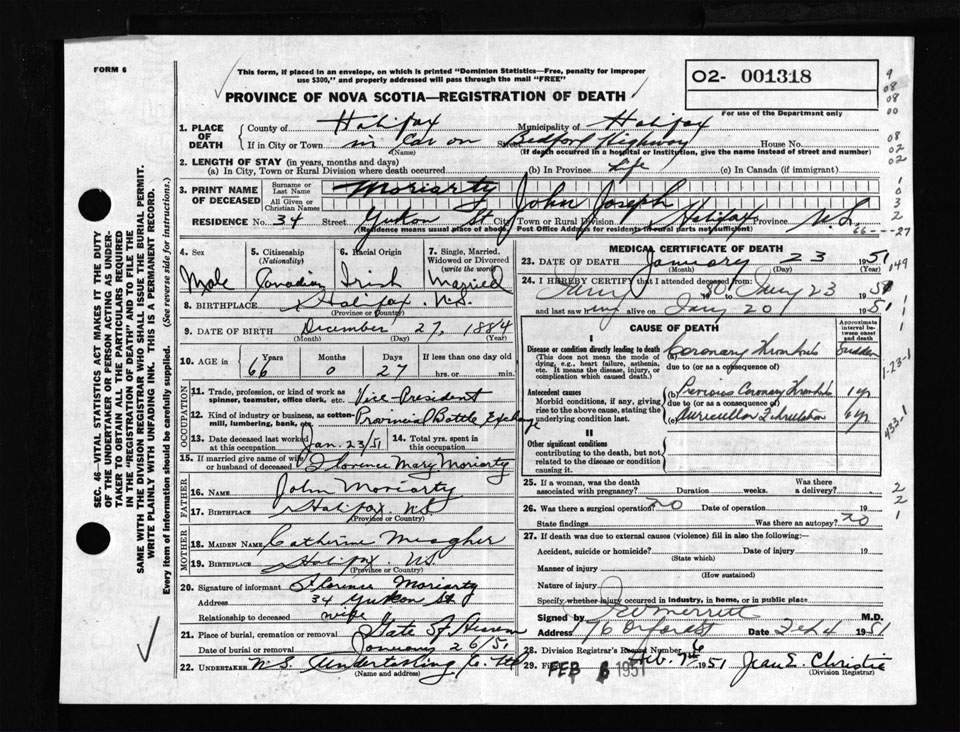 FORM 6
This form, if placed in an envelope, on which is printed "Dominion Statistics—Free, penalty for improper
use $300," and properly addressed will pass through the mail "FREE"
PROVINCE OF NOVA SCOTIA—REGISTRATION OF DEATH
02- 001318
For use of the Department only
1. PLACE OF DEATH County of Halifax Municipality of Halifax
If in City or Town in Car on Street Bedford Highway House No.
(Name) (If death occurred in a hospital or Institution, give the name instead of street and number)
2. LENGTH OF STAY (in years, months and days)
(a) In City, Town or Rural Division where death occurred (b) In Province Life (c) In Canada (if immigrant)
3. PRINT NAME OF DECEASED Surname or Last Name Moriarty
All Given or Christian Names John Joseph
RESIDENCE No. 34 Street Yukon St City, Town or Rural Division Halifax Province N.S.
(Residence means usual place of abode. Post Office Address for residents in rural parts not sufficient)
66---27
4. Sex Male
5. Citizenship (Nationality) Canadian
6. Racial Origin Irish
7. Single, Married, Widowed or Divorced (write the word) Married
8. BIRTHPLACE Halifax N.S.
(Province or Country)
9. DATE OF BIRTH December 27, 1884
(Month) (Day) (Year)
10. AGE in Years 66 Months 0 Days 27 If less than one day old
hrs. or min.
OCCUPATION
11. Trade, profession or kind of work as spinner, teamster, office clerk, etc. Vice-President
12. Kind of industry or business, as cotton-mill, lumbering, bank, etc. Provincial Bottle Exchange
13. Date deceased last worked at this occupation Jan. 23/51 14. Total yrs. spent in this occupation
15. If married give name of wife or husband of deceased Florence Mary Moriarty
FATHER
16. NAME John Moriarty
17. BIRTHPLACE Halifax N.S.
(Province or Country)
MOTHER
18. MAIDEN NAME Catherine Meagher
19. BIRTHPLACE Halifax N.S.
(Province or Country)
20. Signature of informant Florence Moriarty
Address 34 Yukon St
Relationship to deceased wife
21. Place of burial, cremation or removal Gate of Heaven
Date of burial or removal January 26/51
22. UNDERTAKER N.S. Undertaking Co. Ltd
(Name and address)
MEDICAL CERTIFICATE OF DEATH
23. DATE OF DEATH January 23 1951
(Month) (Day) (Year)
24. I HEREBY CERTIFY that I attended deceased from
to Jany 23 1951
and last saw him alive on Jany 20 1951
CAUSE OF DEATH
Approximate interval between onset and death
I
Disease or condition directly leading to death (a) Coronary Thrombosis Sudden
(This does not mean the mode of dying, e.g., heart failure, asthenia, etc. It means the disease, injury, or complication which caused death.)
due to (or as a consequence of)
Antecedent causes (b) Previous Coronary Thrombosis 1 yr
Morbid conditions, if any, giving rise to the above cause, stating the underlying condition last.
due to (or as a consequence of)
(c) Auricular Fibrillation
II
Other significant conditions
contributing to the death, but not related to the disease or condition causing it.
25. If a woman, was the death associated with pregnancy? Duration weeks. Was there a delivery?
26. Was there a surgical operation? no Date of operation 19
State findings Was there an autopsy? no
27. If death was due to external causes (violence) fill in also the following:—
Accident, suicide or homicide? Date of injury 19
(State which)
Manner of injury
(How sustained)
Nature of injury
Specify whether injury occurred in industry, in home, or in public place
Signed by Merritt M.D.
Address 76 Date Feb 4 1951
28. Division Registrar's Record Number
29. Filed Feb. 1951 Jean E. Christie
(Division Registrar)
FEB 6 1951
SEC. 46—VITAL STATISTICS ACT MAKES IT THE DUTY
OF THE UNDERTAKER OR PERSON ACTING AS UNDER-
TAKER TO OBTAIN ALL THE PARTICULARS REQUIRED
IN THE "REGISTRATION OF DEATH" AND TO FILE THE
SAME WITH THE DIVISION REGISTRAR WHO SHALL ISSUE THE BURIAL PERMIT.
WRITE PLAINLY WITH UNFADING INK. THIS IS A PERMANENT RECORD.
Every item of information should be carefully supplied. (See reverse side for instructions.)